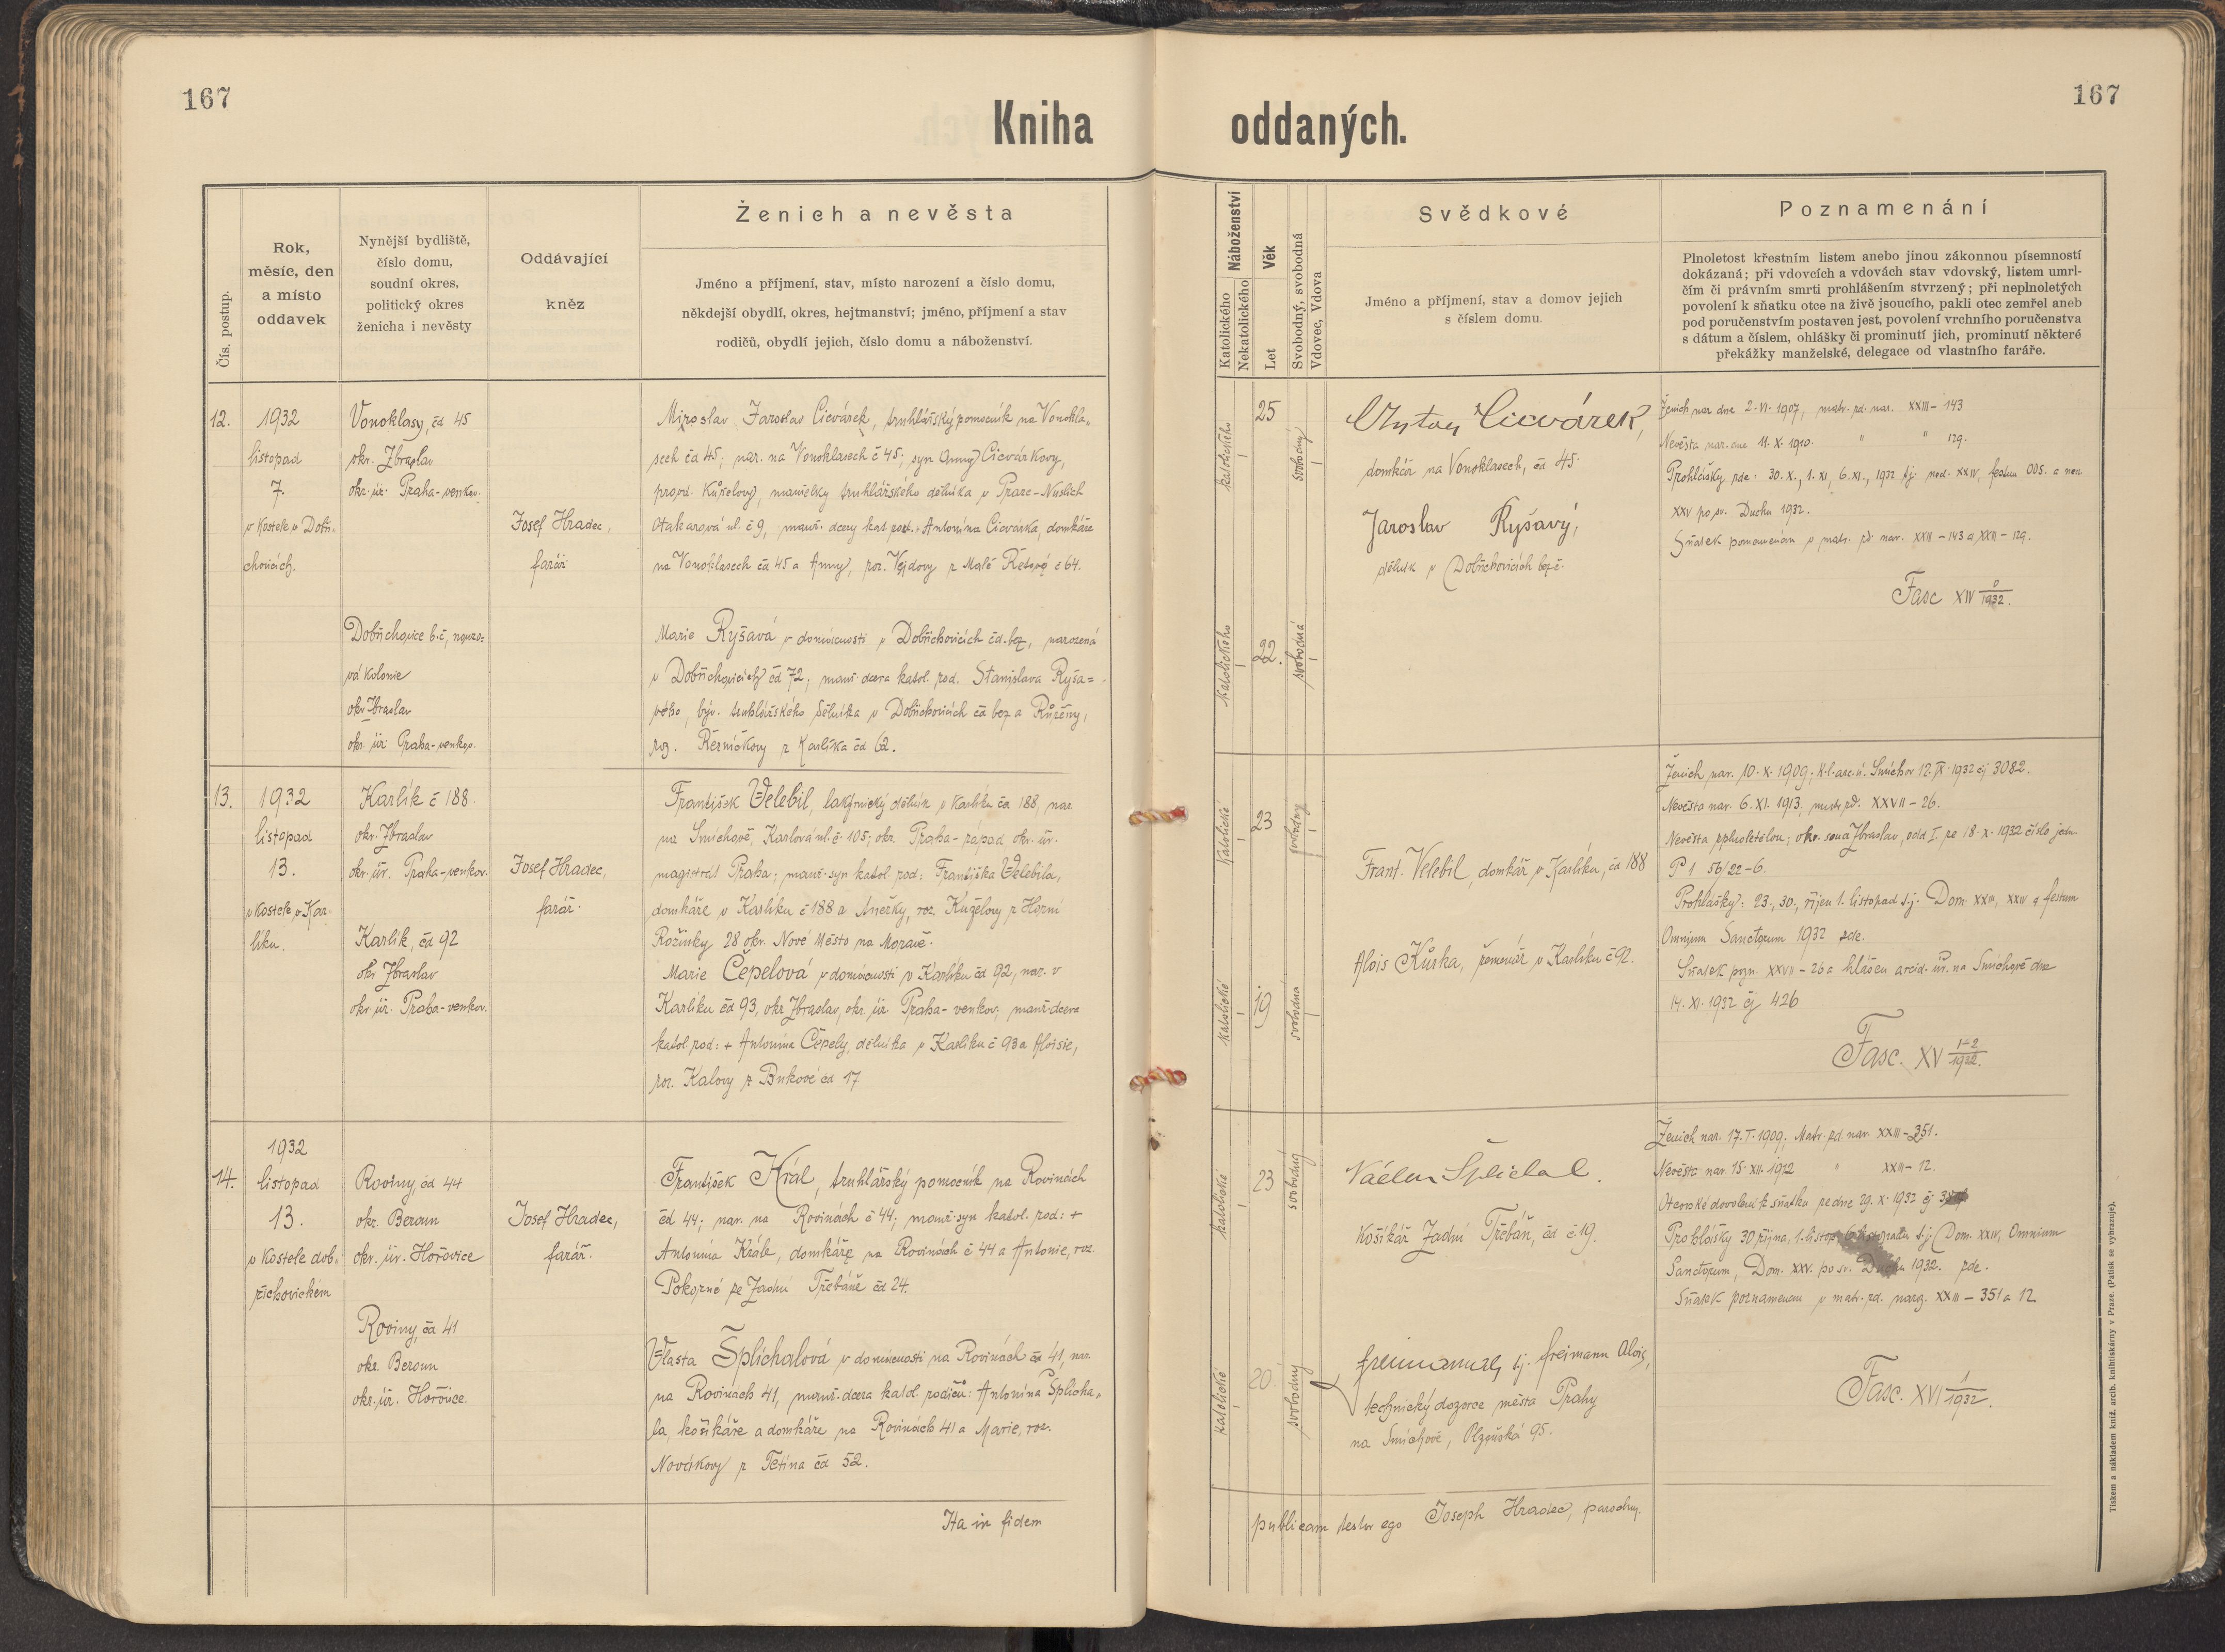 167
167
Kniha oddaných.
Čís. postup.
Rok, měsíc, den a místo oddavek
Nynější bydliště, číslo domu, soudní okres, politický okres ženicha i nevěsty
Oddávající kněz
Ženich a nevěsta
Jméno a příjmení, stav, místo narození a číslo domu,
někdejší obydlí, okres, hejtmanství; jméno, příjmení a stav
rodičů, obydlí jejich, číslo domu a náboženství.
Náboženství
Katolického
Nekatolického
Věk
Let
Svobodný, svobodná
Vdovec, Vdova
Svědkové
Jméno a příjmení, stav a domov jejich
s číslem domu.
Poznamenání
Plnoletost křestním listem anebo jinou zákonnou písemností
dokázaná; při vdovcích a vdovách stav vdovský, listem umrl-
čím či právním smrti prohlášením stvrzený; při neplnoletých
povolení k sňatku otce na živě jsoucího, pakli otec zemřel aneb
pod poručenstvím postaven jest, povolení vrchního poručenstva
s dátum a číslem, ohlášky či prominutí jich, prominutí některé
překážky manželské, delegace od vlastního faráře.
12.
1932
listopad
7.
v kostele v Dobři-
chovicích.
Vonoklasy, čd 45
okr. Zbraslav
okr. úr. Praha-venkov.
Josef Hradec,
farář
Miroslav Jaroslav Cicvárek, truhlářský pomocník na Vonokla-
sech čd 45; nar. na Vonoklasech č 45; syn Anny Cicvárkovy,
provd. manželky truhlářského dělníka v Praze-Nuslích
Otakarová ul. č 9, manž. dcery kat. rod. Antonína Cicvárka, domkáře
na Vonoklasech čd 45 a Anny, roz. Vejdovy z Malé č 64.
Dobřichovice b.č, nouzo-
vá kolonie
okr. Zbraslav
okr. úr. Praha-venkov.
Marie Ryšavá v domácnosti v Dobřichovicích čd. bez, narozená
v Dobřichovicích čd 72; manž. dcera katol. rod. Stanislava Ryša=
vého, býv. truhlářského dělníka v Dobřichovicích čd bez a Růženy,
roz. Řezníčkovy z Karlíka čd 62.
katolického
25
svobodný
katolického
22.
svobodná
Antonín Cicvárek,
domkář na Vonoklasech, čd 45
Jaroslav Ryšavý,
dělník v Dobřichovicích bez č.
Ženich nar. dne 2. VI. 1907, matr. zd. nar. XXIII – 143
Nevěsta nar. dne 11. X. 1910. " " 129.
Prohlášky zde: 30. X., 1. XI., 6. XI., 1932 tj. ned. XXIV, festum OOS. a ned.
XXV po sv. Duchu 1932.
Sňatek poznamenán v matr. zd. nar. XXIII – 143 a XXIII – 129.
Fasc XIV 0/1932.
13.
1932
listopad
13.
v kostele v Kar-
líku.
Karlík č 188
okr. Zbraslav
okr. úr. Praha-venkov.
Josef Hradec,
farář.
František Velebil, lakýrnický dělník v Karlíku čd 188, nar.
na Smíchově, Karlova ul. č. 105; okr. Praha-západ okr. úr.
magistrát Praha; manž. syn katol. rod: Františka Velebila,
domkáře v Karlíku č 188 a Anežky, roz. Kuželovy z Horní
Rožínky 28 okr. Nové Město na Moravě.
Karlík, čd 92
okr Zbraslav
okr. úr. Praha-venkov.
Marie Čepelová v domácnosti v Karlíku čd 92, nar. v
Karlíku čd 93, okr Zbraslav, okr. úr. Praha-venkov; manž. dcera
katol. rod: + Antonína Čepely, dělníka v Karlíku č 93 a Aloisie,
roz. Kalovy z Bukové čd 17
katolické
23
svobodný
katolické
19
svobodná
Frant. Velebil, domkář v Karlíku, čd 188
Alois Kůrka, řemenář v Karlíku č 92.
Ženich nar. 10. X. 1909; k. l. arc. ú. Smíchov 12. IX. 1932 čj 3082.
Nevěsta nar. 6. XI. 1913, matr. zd. XXVII – 26.
Nevěsta zplnoletělou; okr. soud Zbraslav, odd I. ze 18. X. 1932 číslo jedn.
P 1 56/22-6.
Prohlášky: 23., 30., říjen 1. listopad t.j. Dom. XXIII, XXIV a festum
Omnium Sanctorum 1932 zde.
Sňatek pozn. XXVII – 26 a hlášen arcid. úř. na Smíchově dne
14. XI. 1932 čj 426
Fasc. XV 1-2/1932.
14.
1932
listopad
13.
v kostele dob-
řichovickém
Roviny, čd 44
okr. Beroun
okr. úr. Hořovice
Josef Hradec,
farář.
František Král, truhlářský pomocník na Rovinách
čd 44; nar. na Rovinách č 44; manž. syn katol. rod: +
Antonína Krále, domkáře na Rovinách č 44 a Antonie, roz.
Pokorné ze Zadní Třebáně čd 24.
Roviny, čd 41
okr. Beroun
okr. úr. Hořovice.
Vlasta Šplíchalová v domácnosti na Rovinách čd 41, nar.
na Rovinách 41, manž. dcera katol. rodičů: Antonína Šplícha-
la, košíkáře a domkáře na Rovinách 41 a Marie, roz.
Novákovy z Tetína čd 52.
katolické
23
svobodný
katolické
20
svobodný
Václav Šplíchal.
košíkář Zadní Třebáň, čd č 19.
Freimann Alois,
technický dozorce města Prahy
na Smíchově, Plzeňská 95.
Ženich nar. 17. I. 1909; Matr. zd. nar. XXIII – 351.
Nevěsta nar. 15. XII. 1912 " XXIII – 12.
Otcovské dovolení k sňatku ze dne 29. X. 1932 čj
Prohlášky 30 října, 1. listop. 6. listopadu t.j. Dom. XXIV, Omnium
Sanctorum, Dom. XXV. po sv. Duchu 1932. zde.
Sňatek poznamenán v matr. zd. naroz. XXIII – 351 a 12
Fasc. XVI 1/1932.
Ita in fidem
publicam testor ego Joseph Hradec, parochus.
Tiskem a nákladem kníž. arcib. knihtiskárny v Praze. (Patisk se vyhrazuje).